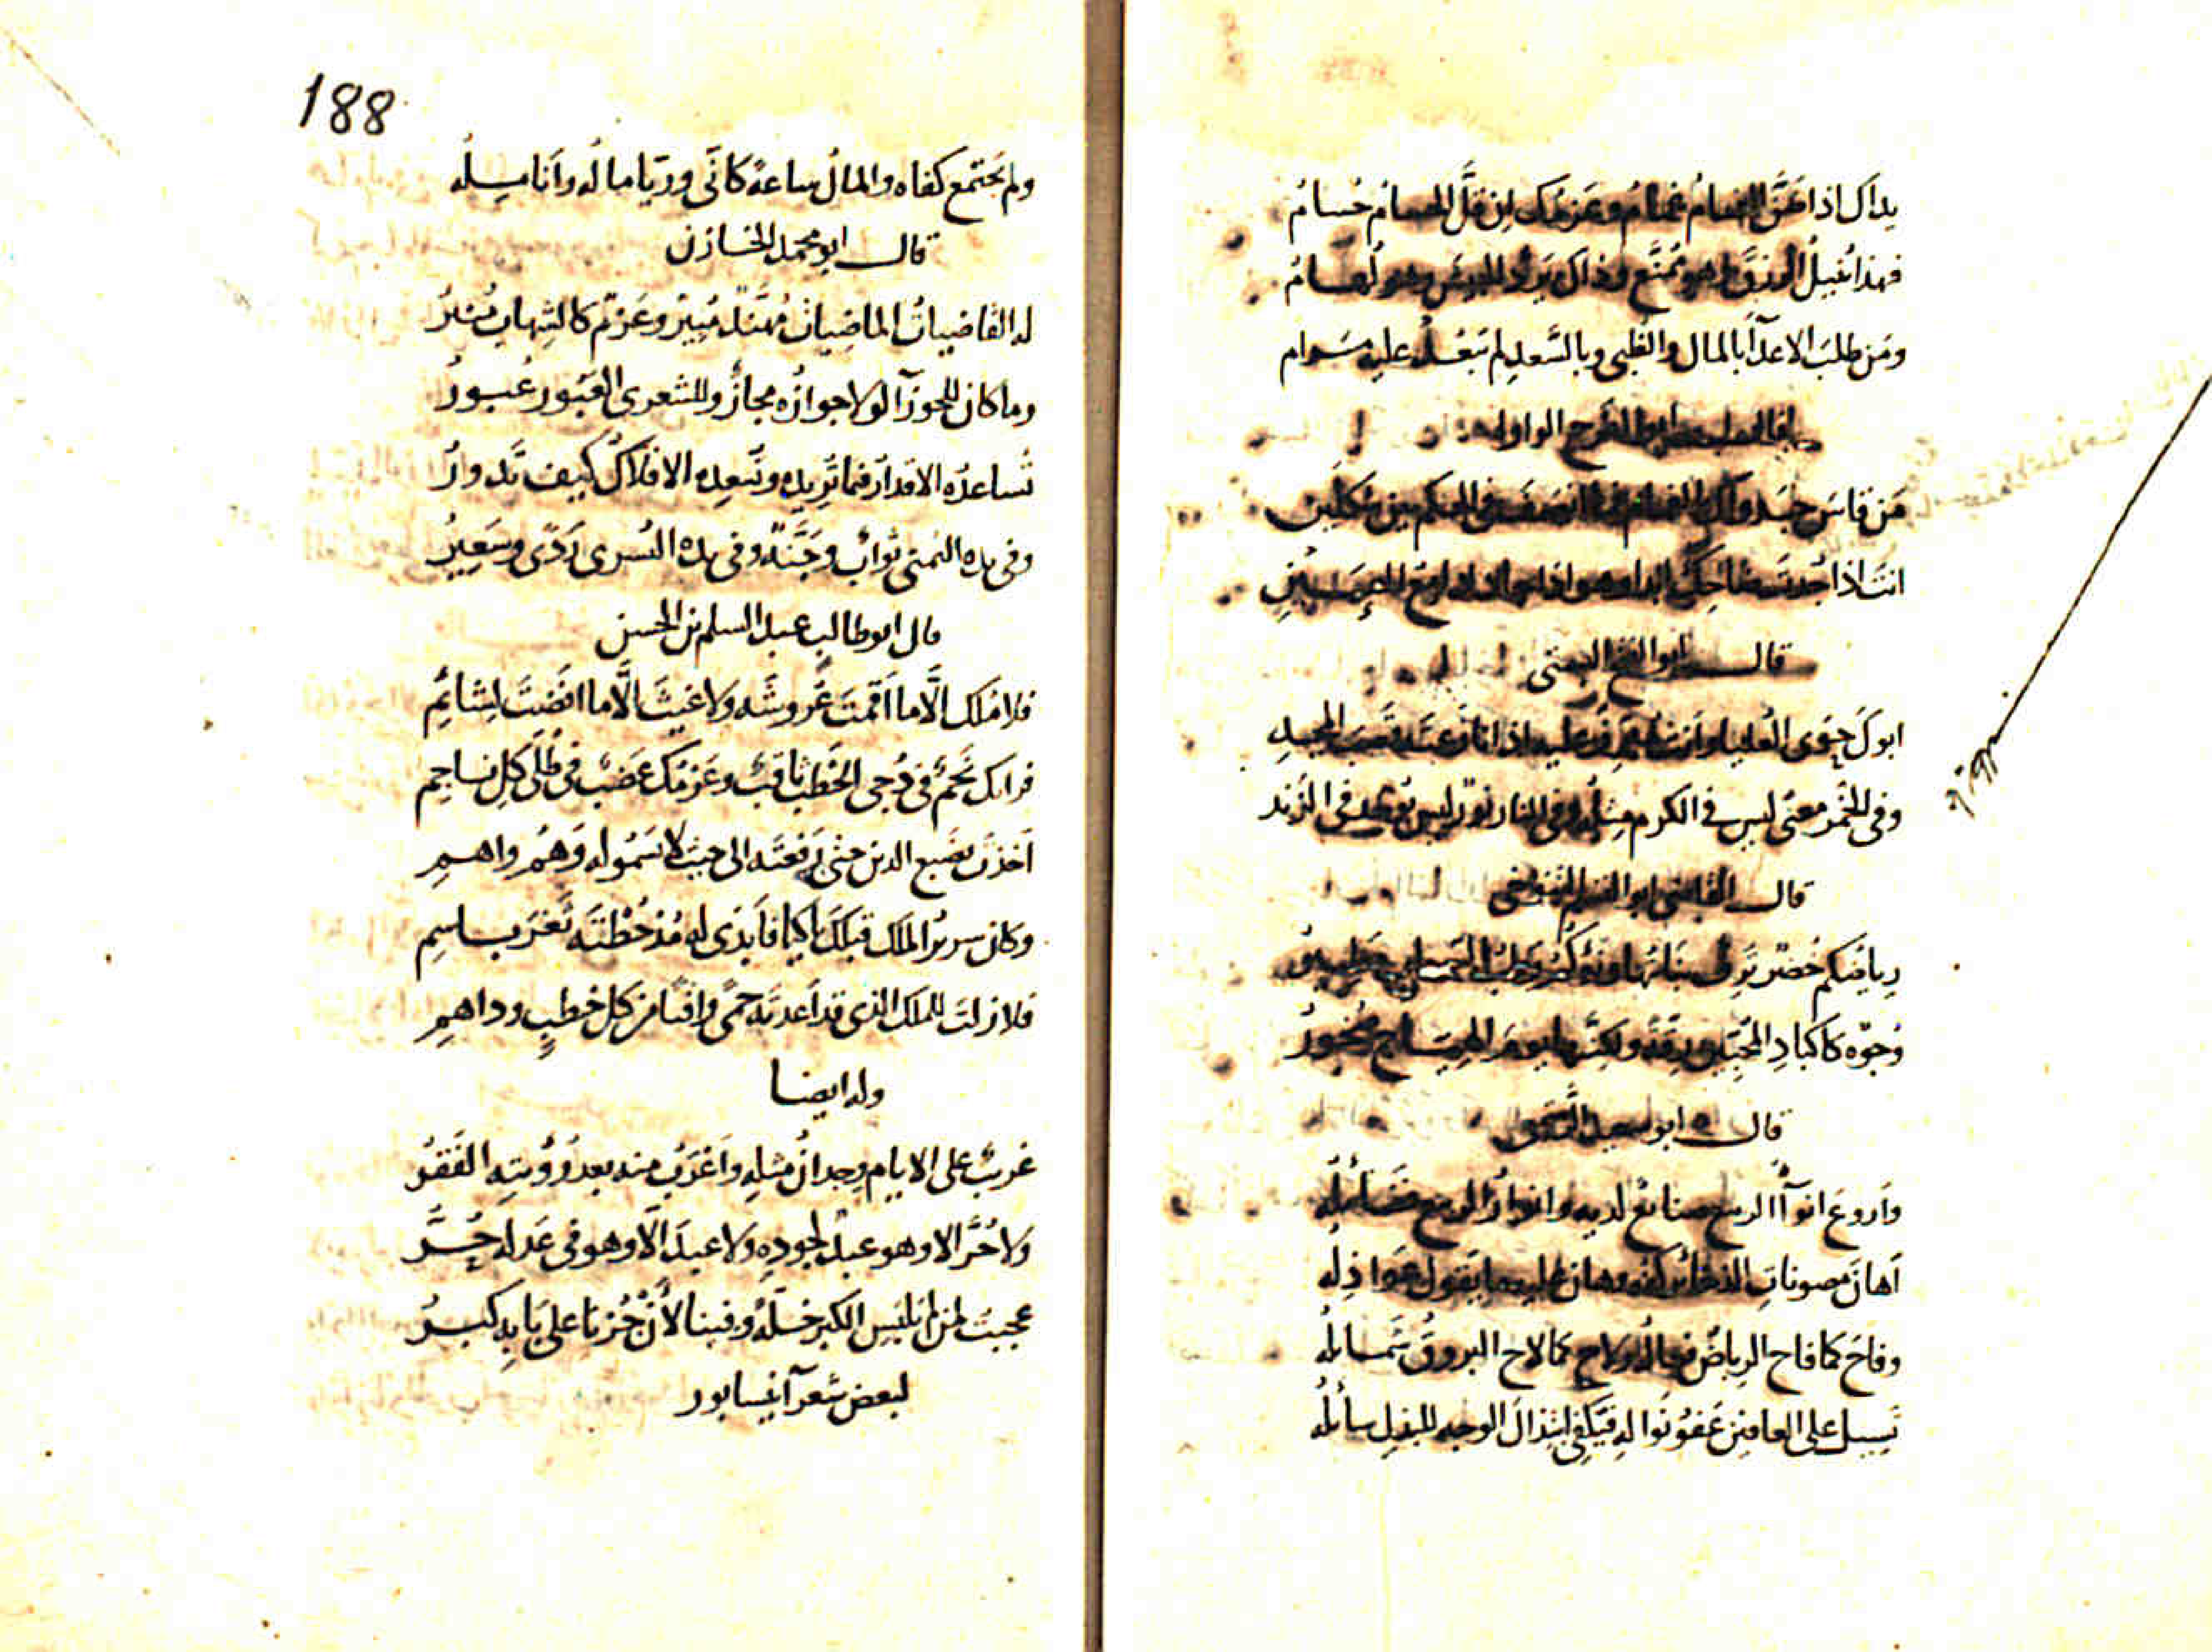 يداك اذا ضَنَّ الغمامُ غمامُ وعَزمُك اِن فُلَّ الحسامُ حُسامُ
فهذا يُنيلُ الرزقَ وهو مُمنَّع وذاك يَردُّ الجيشَ وهو لُهامُ
ومَن طلبَ الاعدآءَ بالمال والظُبى وبالسَّعدِ لم يَبْعُد عليه مَرام
ابو الفرج الواوا
مَن قاسَ جَدواك بالغمام فما انصفَ فى الحكم بين شكلَين
انتَ اذا جُدتَ ضاحِكٌ ابدا وهو اذا جاد دامع العَين
قال ابو الفتح البستى
ابوكَ حَوى العليا وانتَ عليه اذا نازعته قَصَبَ المجدِ
وفى الخَمر معنًى ليس فى الكرم مِثلُه وفى النار نورٌ ليس يُوجد فى الزند
قال القاضى ابو القسم التنوخى
رياضُكم خُضرٌ يَرِفُّ نباتُها
وُجوْه كاكبادِ المُحِبّين رِقّةً ولكنَّها يومَ الهِياج صُخورُ
قال ابو سعيد الرُّستمى
واَروعَ انوآءُ الربيع صنائعٌ لديه وانوارُ الربيع فَضائلُه
اَهانَ مصوناتِ الذخائر كفّه وهانَ عليه ما يقول عَواذِلُه
وفاحَ كما فاح الرياضُ فِعالُه ولاحَ كما لاح البروقُ شَمايلُه
يَسيل على العافين عَفوُ نَواله فيَكفى ابتذالَ الوجهِ للبذلِ سائلُه
188
ولم يَجتمع كفاه والمالُ ساعةً كانّى وريّا مالُه واَنامِلُه
قال ابو محمد الخازن
له القاضيات الماضِيان مُهنّدٌ مُبِيرٌ وعَزمٌ كالشِهاب مُنِيرُ
وما كان للجوزآء لولا جوازُه مجازٌ وللشعرى العَبُور عُبورُ
تُساعدُه الاقدارُ فيما تُريده وتُسعِده الافلاكُ كيف تَدورُ
وفى يده اليُمنى ثوابٌ وجَنّةٌ وفى يده اليُسرى رَدًى وسَعيرُ
قال ابو طالب عبد السلم بن الحسن
فلا مُلكَ الَّا ما اَقمتَ عُروشَه ولا غيثَ الَّا ما افضتَ لِشائمِ
فرايك نجمٌ فى دُجى الخَطب ثاقبٌ وعَزمُك عَضبٌ فى طُلى كلِ ناجِم
اَخذتَ بضَبع الدين حتى رَفعتَه الى حيثُ لا يسَمُو له وَهْمُ واهمِ
وكان سريرُ المُلك قبلَك باكيا فاَبدَى له مُذْ حُطْتَه ثَغرَ باسِمِ
فلا زلتَ للملك الذى قد اعدتَه حِمًى واقيا من كل خطبٍ وداهمِ
وله ايضا
غريبٌ على الايامِ وِجدانُ مثلِه واَغرَبُ منه بعد رؤيتِه الفَقرُ
ولا حُرَّ الا وهو عبدٌ لجودِه ولا عبدَ الَّا وهو فى عَدله حُرُّ
عجبتُ لمن لم يَلبَسِ الكِبر خُلّةً وفينا لأَنْ جُزنا على بَابِه كبرُ
لبعض شعرآ نيسابور